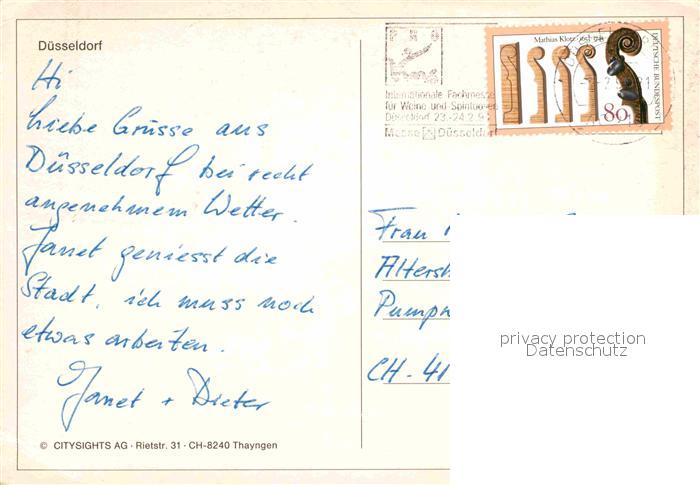 Düsseldorf
Hi
Liebe Grüsse aus
Düsseldorf bei recht
angenehmem Wetter.
Janet geniesst die
Stadt, ich muss noch
etwas arbeiten.
Janet + Dieter
© CITYSIGHTS AG · Rietstr. 31 · CH-8240 Thayngen
Internationale Fachmesse
für Weine und Spirituosen
Düsseldorf 23.-24.2.9
Messe Düsseldorf
Mathias Klotz
80
DEUTSCHE BUNDESPOST
Frau
Altersh
Pump
CH-41
privacy protection
Datenschutz